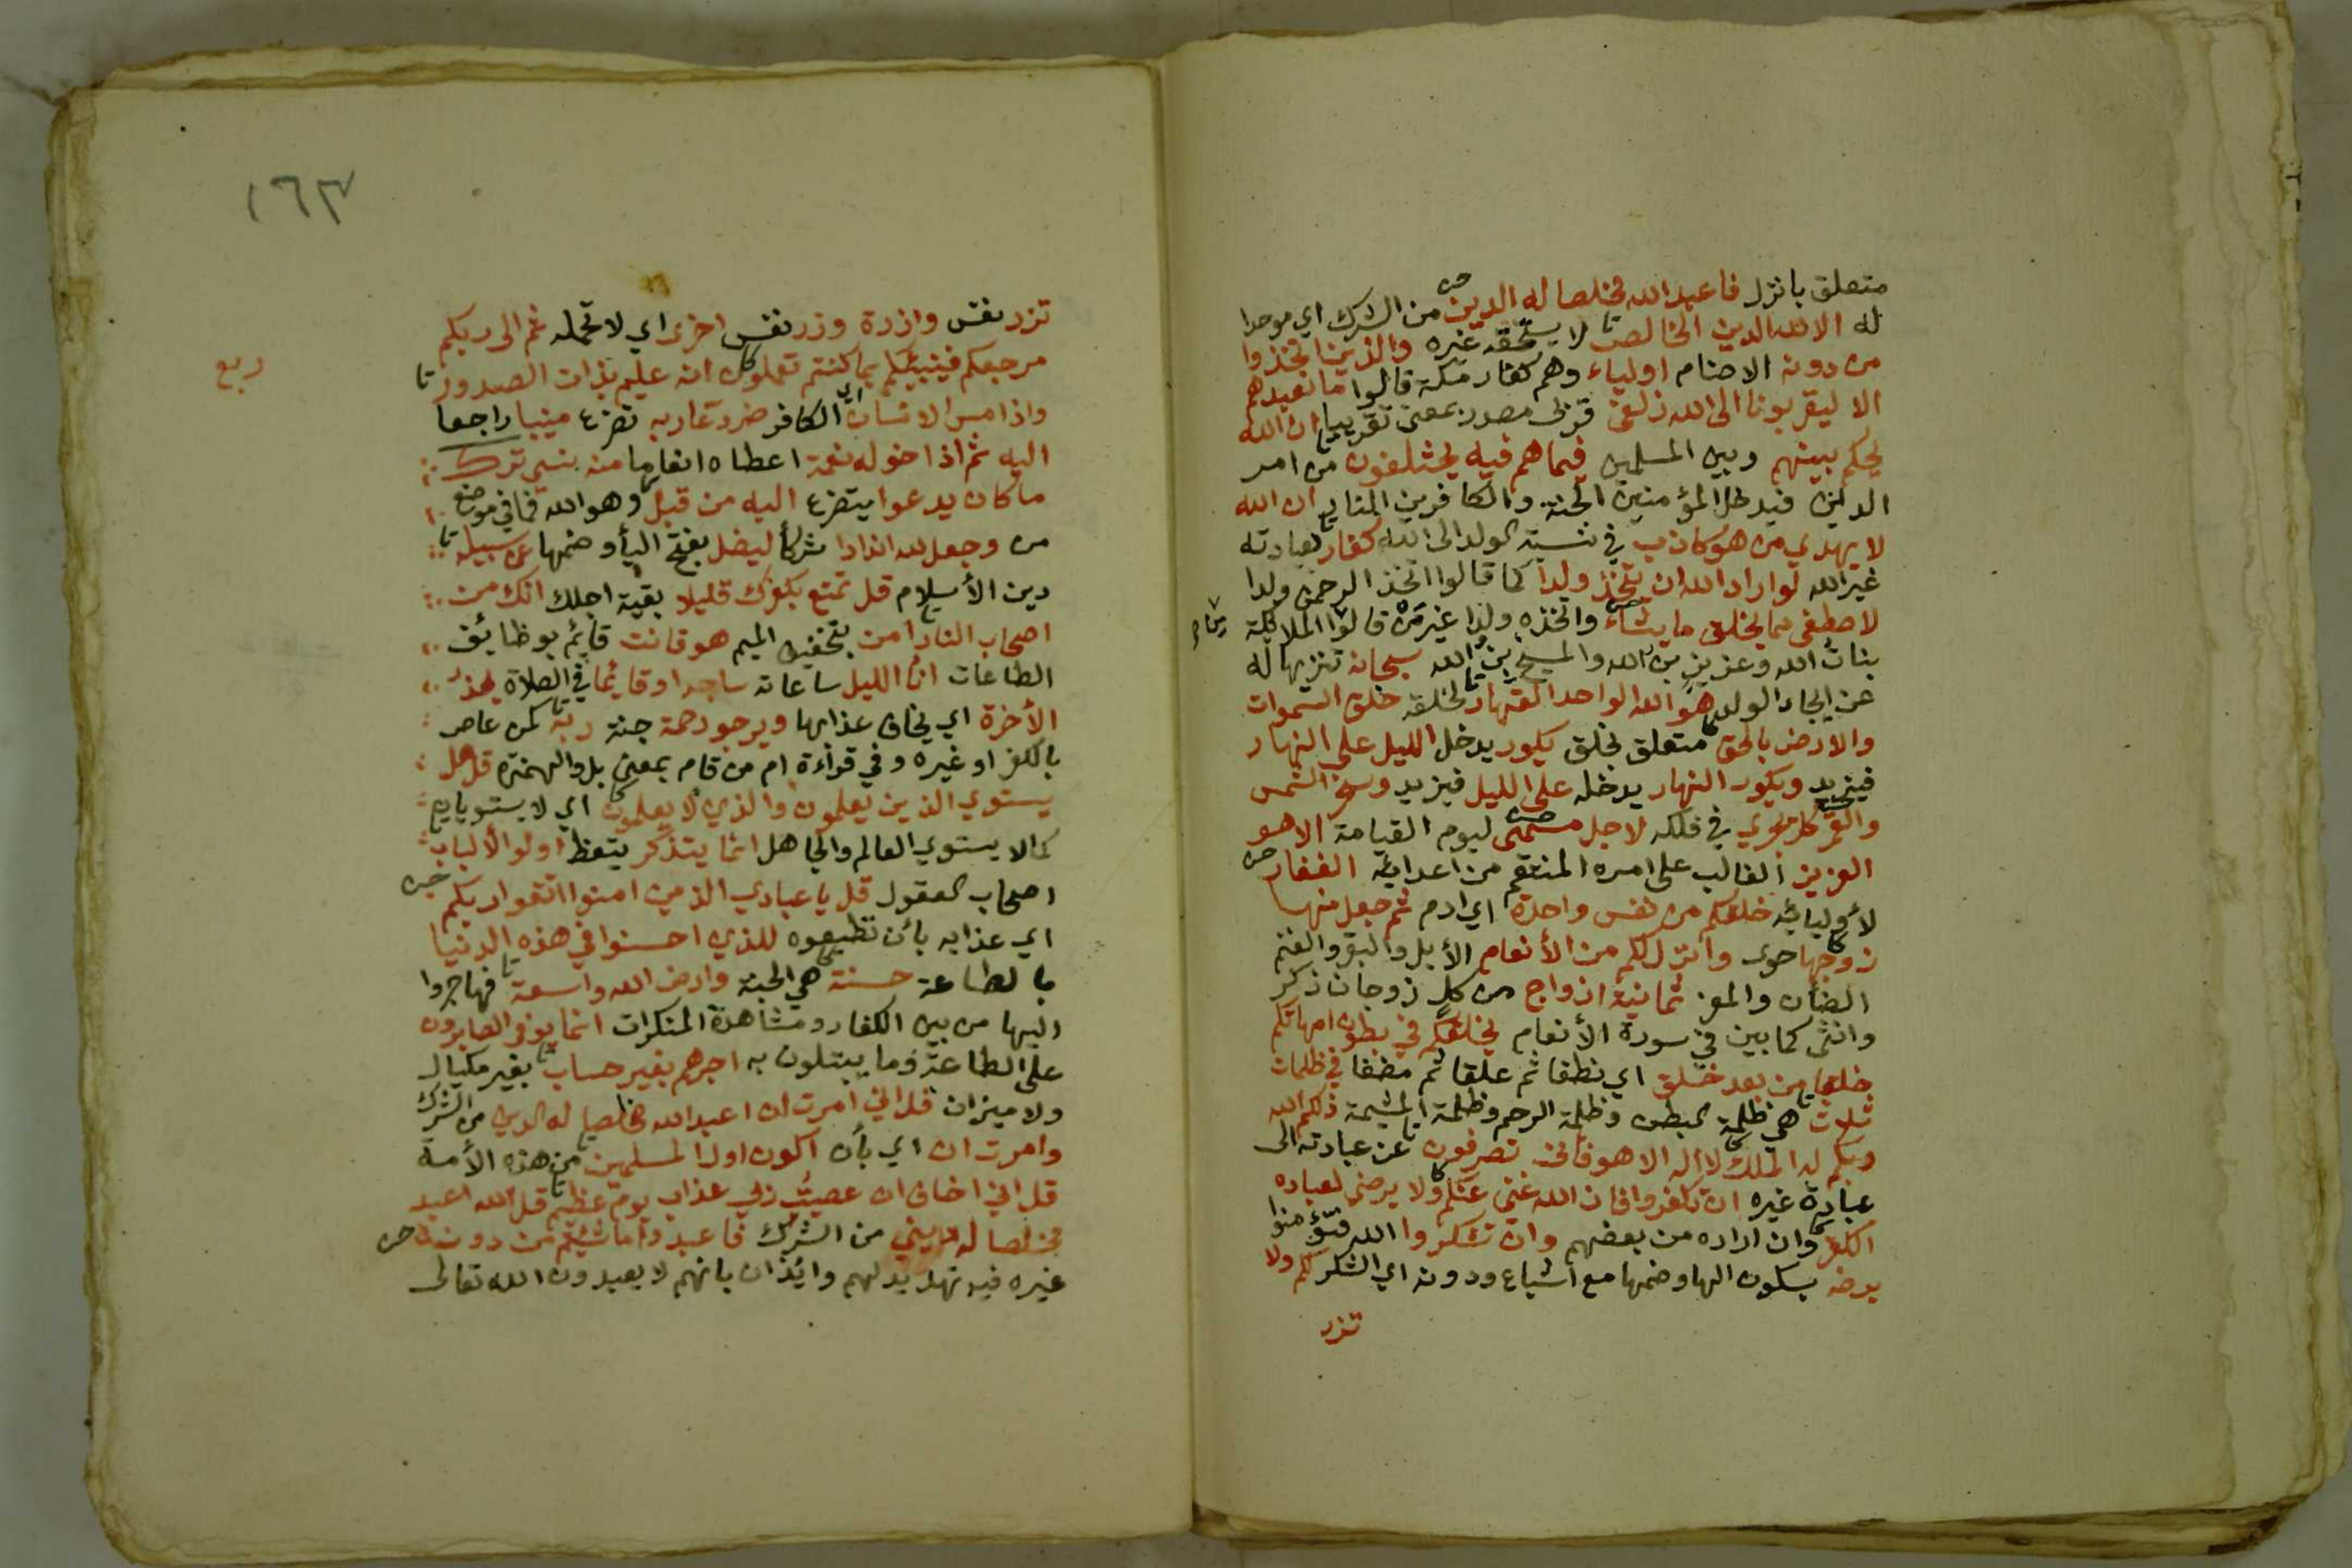 متعلق بانزل فاعبد الله مخلصا له الدين من الشرك اي موحدا
له الا لله الدين الخالص لا يستحقه غيره والذين اتخذوا
من دونه الاصنام اولياء وهم كفار مكة قالوا ما نعبدهم
الا ليقربونا الى الله زلفى قربى مصدر بمعنى تقريبا ان الله
يحكم بينهم وبين المسلمين فيما هم فيه يختلفون من امر
الدين فيدخل المؤمنين الجنة والكافرين النار ان الله
لا يهدي من هو كاذب في نسبته الولد الى الله كفار بعبادته
غير الله لو اراد الله ان يتخذ ولدا كما قالوا اتخذ الرحمن ولدا
لاصطفى مما يخلق ما يشاء واتخذه ولدا غير من قالوا الملائكة
بنات الله وعزيز بن الله والمسيح بن الله سبحانه تنزيها له
عن ايجاد الولد هو الله الواحد القهار لخلقه خلق السموات
والارض بالحق متعلق بخلق يكور يدخل الليل على النهار
فيزيد ويكور النهار يدخله على الليل فيزيد وسخر الشمس
والقمر كل يجري في فلكه لاجل مسمى ليوم القيامة الا هو
العزيز الغالب على امره المنتقم من اعدائه الغفار
لأوليائه خلقكم من نفس واحدة اي ادم ثم جعل منها
زوجها حوى وانزل لكم من الأنعام الأبل والبقر والغنم
الضأن والمعز ثمانية ازواج من كل زوجان ذكر
وانثى كما بين في سورة الأنعام يخلقكم في بطون امهاتكم
خلقا من بعد خلق اي نطفا ثم علقا ثم مضغا في ظلمات
ثلاث هي ظلمة البطن وظلمة الرحم وظلمة المشيمة ذلكم الله
ربكم له الملك لا اله الا هو فانى تصرفون عن عبادته الى
عبادة غيره ان تكفروا فان الله غني عنكم ولا يرضى لعباده
الكفر وان اراده من بعضهم وان تشكروا الله فتؤمنوا
يرضه بسكون الها وضمها مع اشباع ودونه اي الشكر لكم ولا
تزر
١٦٣
ربع
تزر نفس وازرة وزر نفس اخرى اي لا تحمله ثم الى ربكم
مرجعكم فينبئكم بما كنتم تعملون انه عليم بذات الصدور
واذا مس الانسان اي الكافر ضر دعا ربه تضرع منيبا راجعا
اليه ثم اذا خوله نعمة اعطاه انعاما منه نسي ترك
ما كان يدعوا يتضرع اليه من قبل وهو الله فما في موضع
من وجعل لله اندادا شركأ ليضل بفتح اليأ وضمها عن سبيله
دين الأسلام قل تمتع بكفرك قليلا بقية اجلك انك من
اصحاب النار امن بتخفيف الميم هو قانت قائم بوظائف
الطاعات انا الليل ساعاته ساجدا وقائما في الصلاة يحذر
الأخرة اي يخاف عذابها ويرجو رحمة جنة ربه كمن عاص
بالكفر او غيره وفي قراءة ام من فام بمعنى بل والهمزة قل هل
يستوي الذين يعلمون والذي لا يعلمون اي لا يستويان
كما لا يستوي العالم والجاهل انما يتذكر يتعظ اولوا الألباب
اصحاب العقول قل يا عبادي الذين امنوا اتقوا ربكم
اي عذابه بأن تطيعوه للذين احسنوا في هذه الدنيا
بالطاعة حسنة هي الجنة وارض الله واسعة فهاجروا
اليها من بين الكفار ومشاهدة المنكرات انما يوفى الصابرون
على الطاعة وما يبتلون به اجرهم بغير حساب بغير مكيال
ولا ميزان قل اني امرت ان اعبد الله مخلصا له الدين من الشرك
وامرت ان اي بأن اكون اول المسلمين من هذه الأمة
قل اني اخاف ان عصيت ربي عذاب يوم عظيم قل الله اعبد
مخلصا له ديني من الشرك فاعبدوا ما شئتم من دونه
غيره فيه تهديد لهم وايذان بانهم لا يعبدون الله تعالى